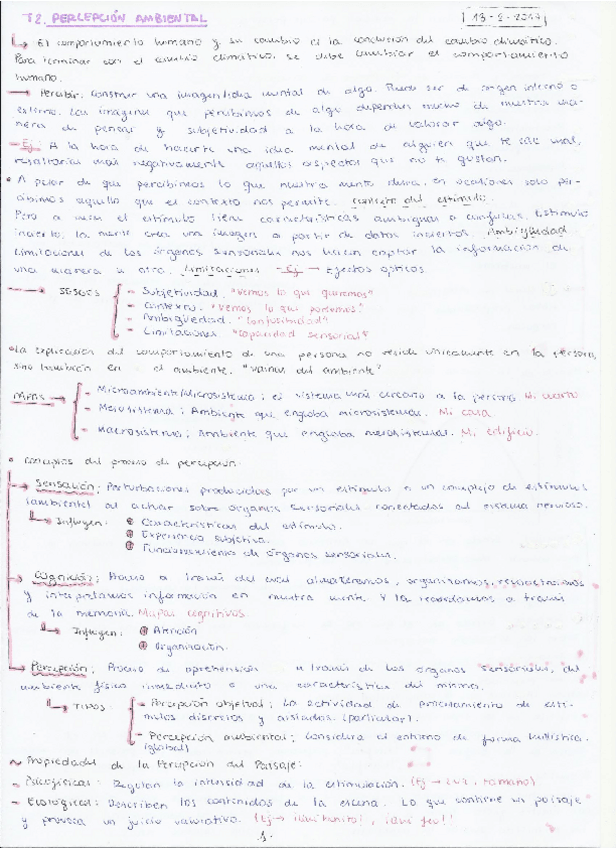 T2. PERCEPCIÓN AMBIENTAL
El comportamiento humano y su cambio es la conclusión del cambio climático.
Para terminar con el cambio climático, se debe cambiar el comportamiento
humano.
→ Percibir. Construir una imagen/idea mental de algo. Puede ser de origen interno o
externo. Las imágenes que percibimos de algo dependen mucho de nuestra ma-
nera de pensar y subjetividad a la hora de valorar algo.
- Ej: A la hora de hacerte una idea mental de alguien que te cae mal,
resaltarías más negativamente aquellos aspectos que no te gustan.
• A pesar de que percibimos lo que nuestra mente desea, en ocasiones solo per-
cibimos aquello que el contexto nos permite. Contexto del estímulo.
Pero a veces el estímulo tiene características ambiguas o confusas. Estímulo
incierto, la mente crea una imagen a partir de datos inciertos. Ambigüedad
Limitaciones de los órganos sensoriales nos hacen captar la información de
una manera u otra. Limitaciones - Ej → Efectos ópticos
→ SESGOS
- Subjetividad. "Vemos lo que queremos"
- Contexto. "Vemos lo que podemos"
- Ambigüedad. "Confusibidad"
- Limitaciones. "Capacidad sensorial"
• La explicación del comportamiento de una persona no reside únicamente en la persona,
sino también en el ambiente. "Vamos del ambiente"
- Microambiente/Microsistema: el sistema más cercano a la persona Mi cuarto
- Mesosistema: Ambiente que engloba microsistemas. Mi casa.
- Macrosistema: Ambiente que engloba mesosistemas. Mi edificio.
• Conceptos del proceso de percepción:
→ Sensación: Perturbaciones producidas por un estímulo o un complejo de estímulos
(ambiente) al actuar sobre órganos sensoriales conectados al sistema nervioso.
Influyen: • Características del estímulo.
• Experiencia subjetiva.
• Funcionamiento de órganos sensoriales.
→ Cognición: Proceso a través del cual almacenamos, organizamos, reestructuramos
y interpretamos información en nuestra mente. Y la recordamos a través
de la memoria. Mapas cognitivos
Influyen: • Atención
• Organización.
→ Percepción: Proceso de aprehensión a través de los órganos sensoriales, del
ambiente físico inmediato o una característica del mismo.
→ TIPOS
- Percepción objetual: La actividad de procesamiento de estí-
mulos discretos y aislados. (particular).
- Percepción ambiental: Considera el entorno de forma holística.
(global)
~ Propiedades de la Percepción del Paisaje:
- Psicofísicas: Regulan la intensidad de la estimulación. (Ej → luz, tamaño)
- Ecológicas: Describen los contenidos de la escena. Lo que contiene un paisaje
y provoca un juicio valorativo. (Ej → ¡Qué bonito!, ¡Qué feo!)
·1·